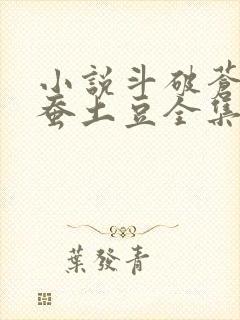 小説斗破蒼
蚕土豆全集
葉發青